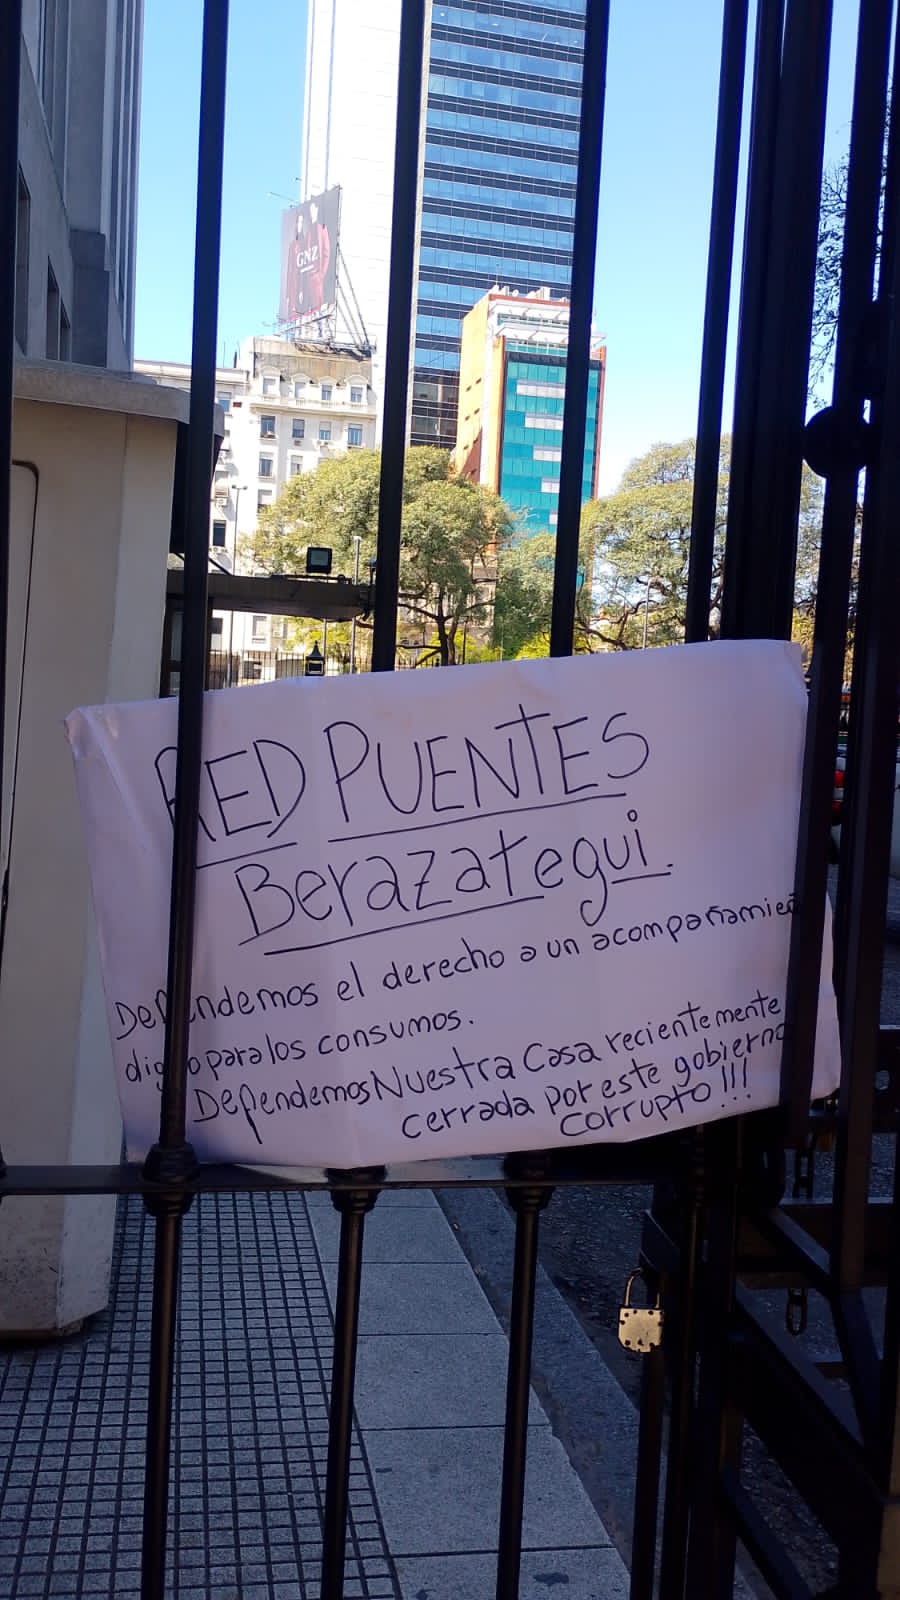 GNZ
RED PUENTES
Berazategui.
Defendemos el derecho a un acompañamien
digno para los consumos.
Defendemos Nuestra Casa recientemente
cerrada por este gobierno
corrupto!!!